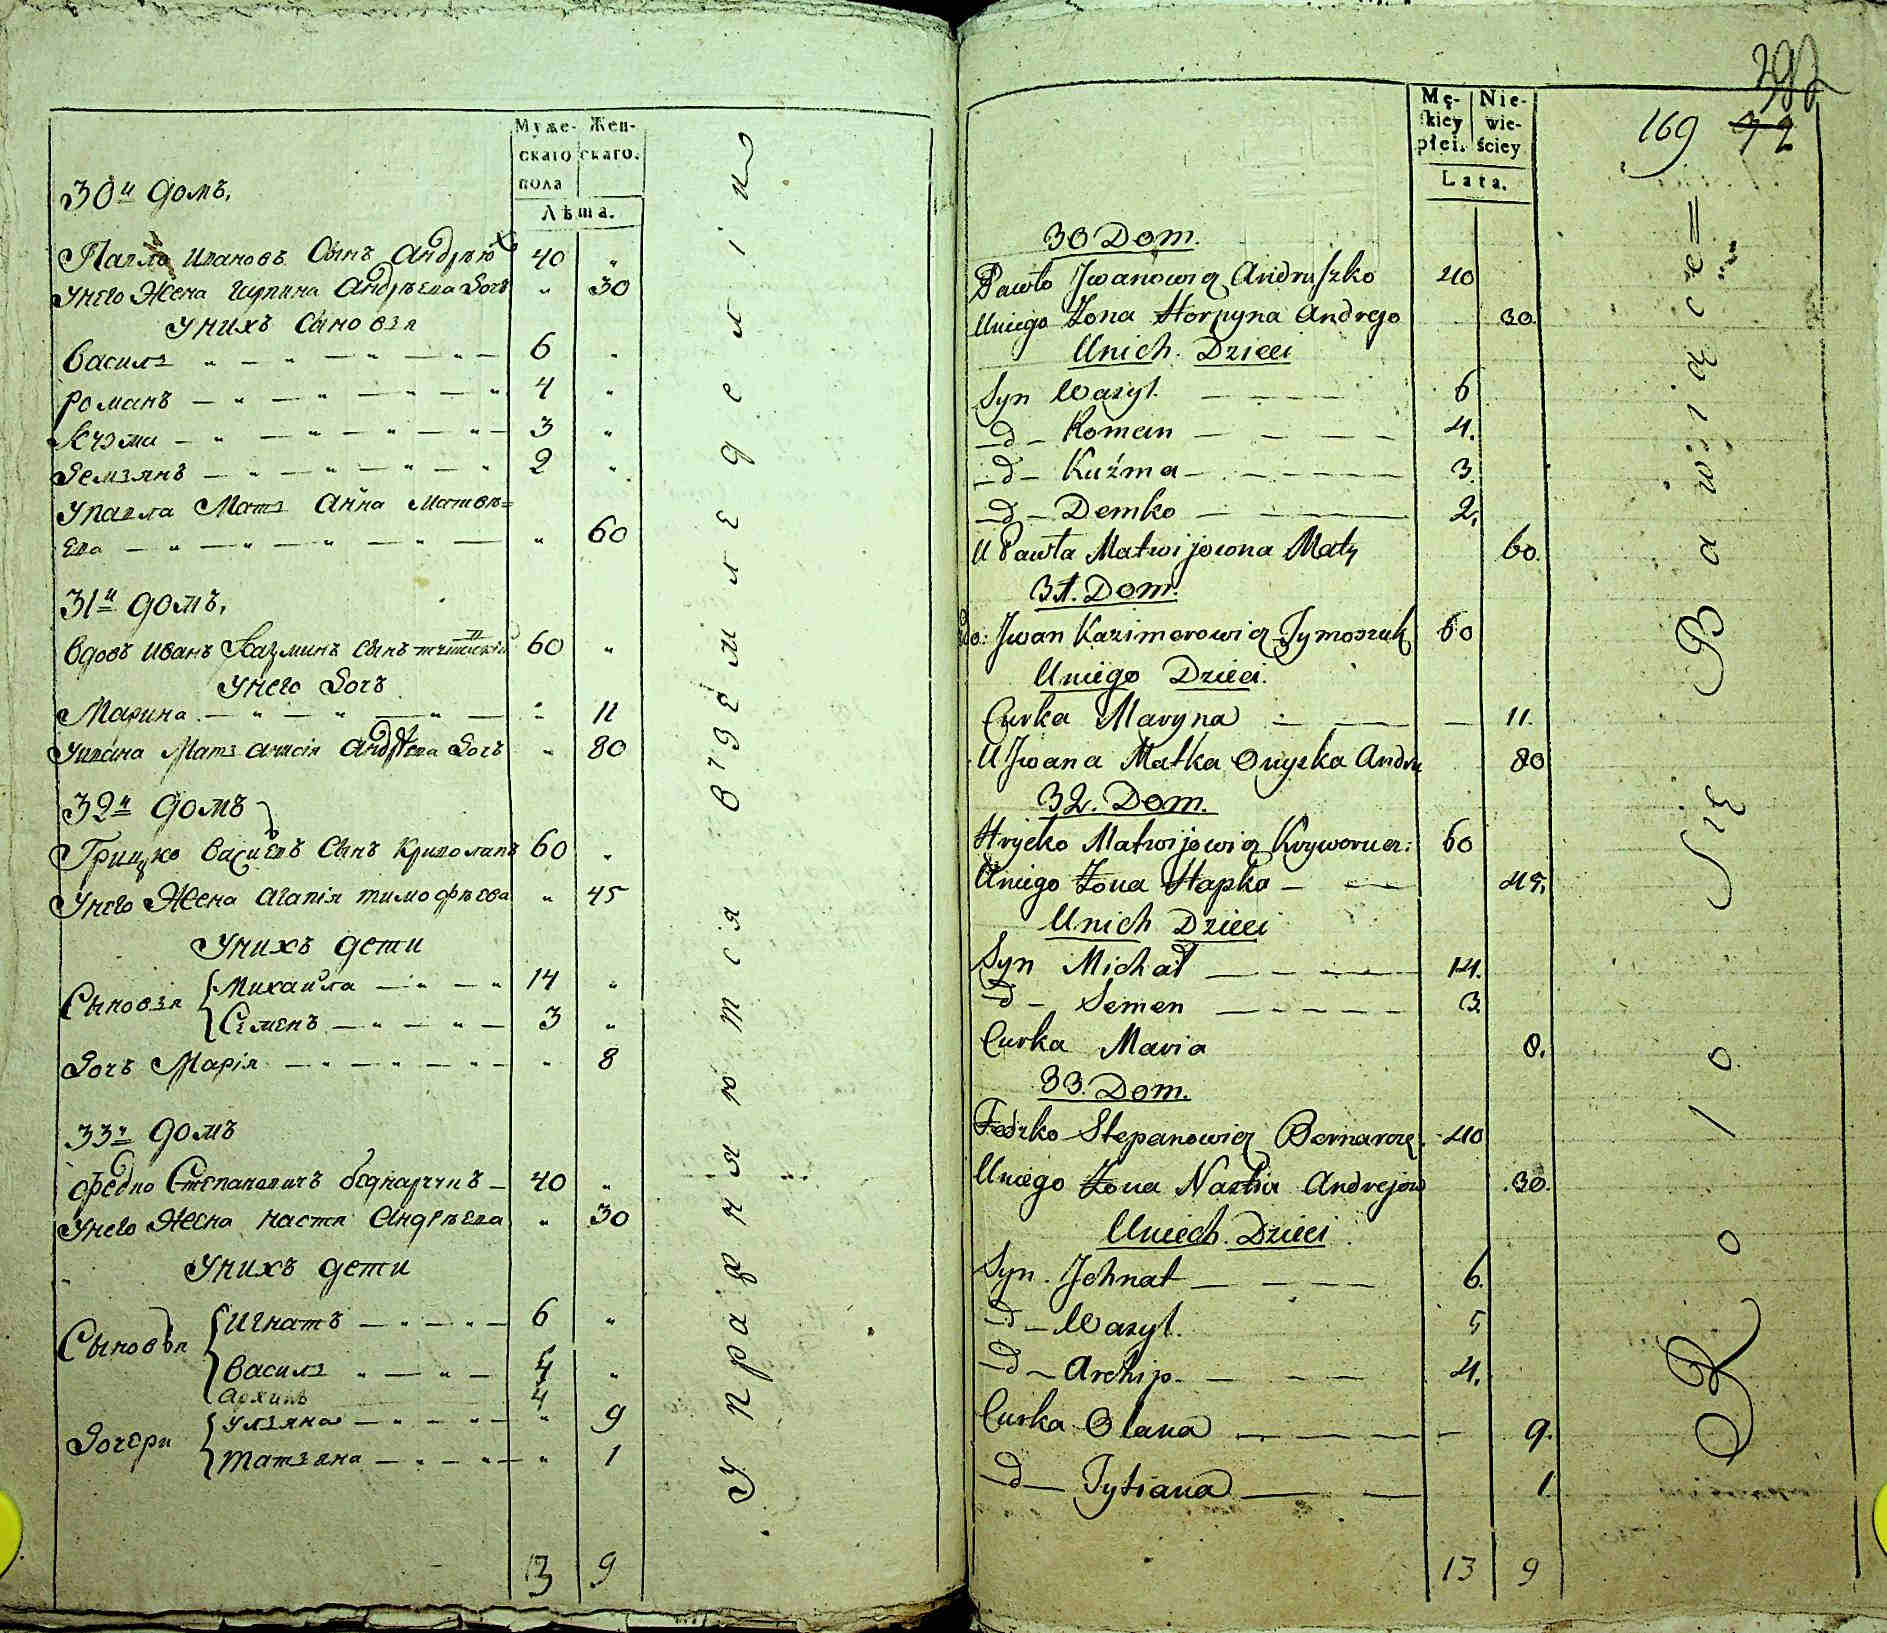 Муже-
скаго
пола
Жен-
скаго.
Лѣта.
30й домъ,
Павло Ивановъ Сынъ Андрею 40 „
Унего Жена Гирпина Андрѣева Дочь „ 30
Унихъ Сыновья
Василь 6 „
Романъ 4 „
Кузма 3 „
Демьянъ 2 „
Упавла Мать Анна Матвѣ=
ева „ 60
31й домъ,
Вдовъ Иванъ Казминъ Сынъ 60 „
Унего Дочь
Марина „ 11
Уивана Мать Анисія Андрѣева Дочь „ 80
32й домъ
Грицко Васиевъ Сынъ Криволапъ 60 „
Унего Жена Агапія Тимофѣева „ 45
Унихъ дети
Сыновья Михайла 14 „
Семенъ 3 „
Дочь Марія „ 8
33й домъ
Федко Степановичъ Беднарчукъ 40 „
Унего Жена Настя Андрѣева „ 30
Унихъ дети
Сыновья Игнатъ 6 „
Василь „
Архипъ 4
Дочери Ульяна „ 9
Татьяна „ 1
13 9
Упражняются въ земледеліи
Mę-
skiey
płci.
Nie-
wie-
ściey
Lata.
169 72
30 Dom.
Pawło Jwanowicz Andruszko 40
Uniego Żona Horpyna Andrejo 30.
Unich Dzieci
Syn Wasyl 6
d Roman 4.
d Kuźma 3.
d Demko 2.
U Pawła Matwijowna Maty 60.
31. Dom.
Wdo: Jwan Kazimerowicz Tymoszuk 60
Uniego Dzieci.
Curka Maryna 11.
U Jwana Matka Onyska Andru 80
32. Dom.
Hryćko Matwijowicz Kryworucz: 60
Uniego Żona Hapka 45.
Unich Dzieci
Syn Michał 14.
d Semen 3
Curka Maria 8.
33. Dom.
Fedzko Stepanowicz Bernarcz. 40
Uniego Żona Nastia Andrejow 30.
Uniech Dzieci
Syn Jehnat 6.
d Wasyl. 5
d Archip 4.
Curka Olana 9.
d Tytiana 1
13 9
Rolo Się Bawiące=